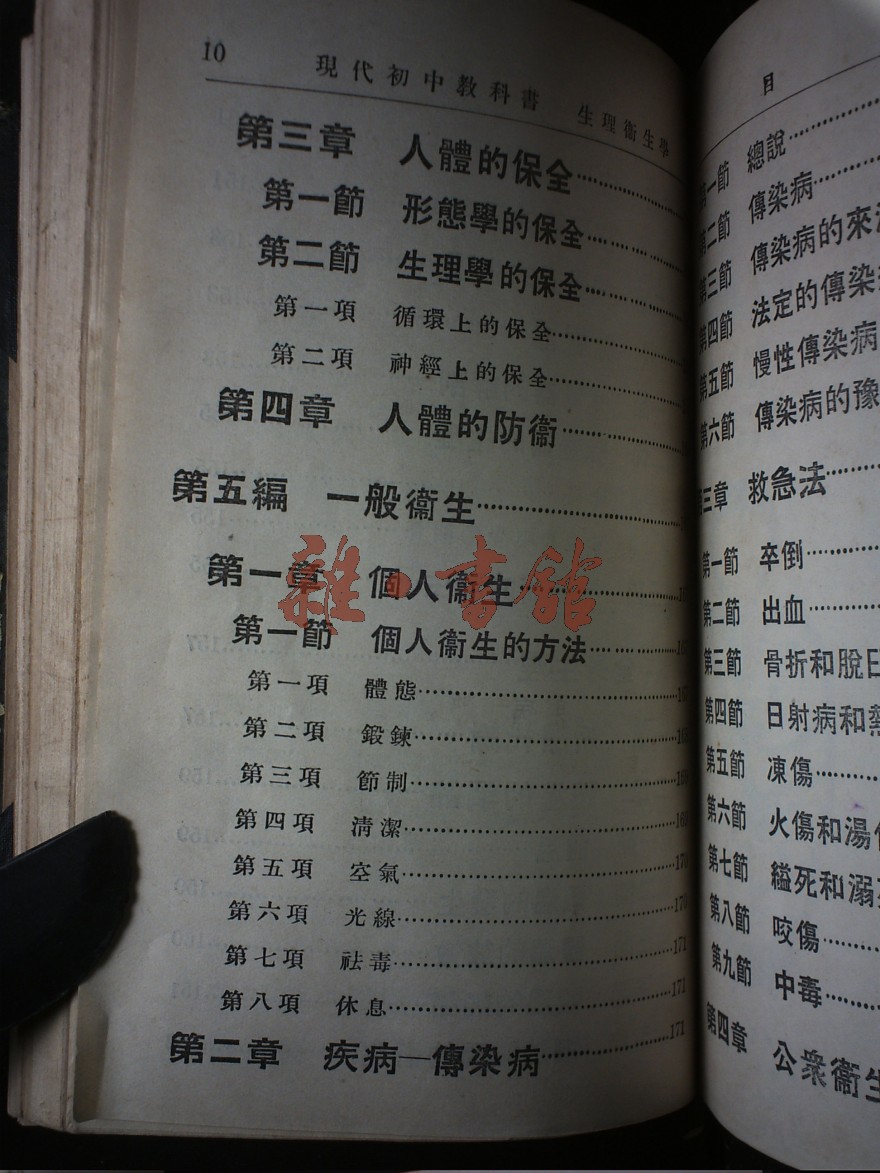 10 現代初中教科書 生理衞生學
第三章 人體的保全
第一節 形態學的保全
第二節 生理學的保全
第一項 循環上的保全
第二項 神經上的保全
第四章 人體的防衞
第五編 一般衞生
第一章 個人衞生
第一節 個人衞生的方法
第一項 體態
第二項 鍛鍊
第三項 節制
第四項 清潔
第五項 空氣 170
第六項 光線 170
第七項 祛毒 171
第八項 休息 171
第二章 疾病—傳染病 171
雜·書館
目
第一節 總說
第二節 傳染病
第三節 傳染病的來
第四節 法定的傳染
第五節 慢性傳染病
第六節 傳染病的豫
三章 救急法
第一節 卒倒
第二節 出血
第三節 骨折和脫臼
第四節 日射病和熱
第五節 凍傷
第六節 火傷和湯
第七節 縊死和溺
第八節 咬傷
第九節 中毒
第四章 公衆衞生